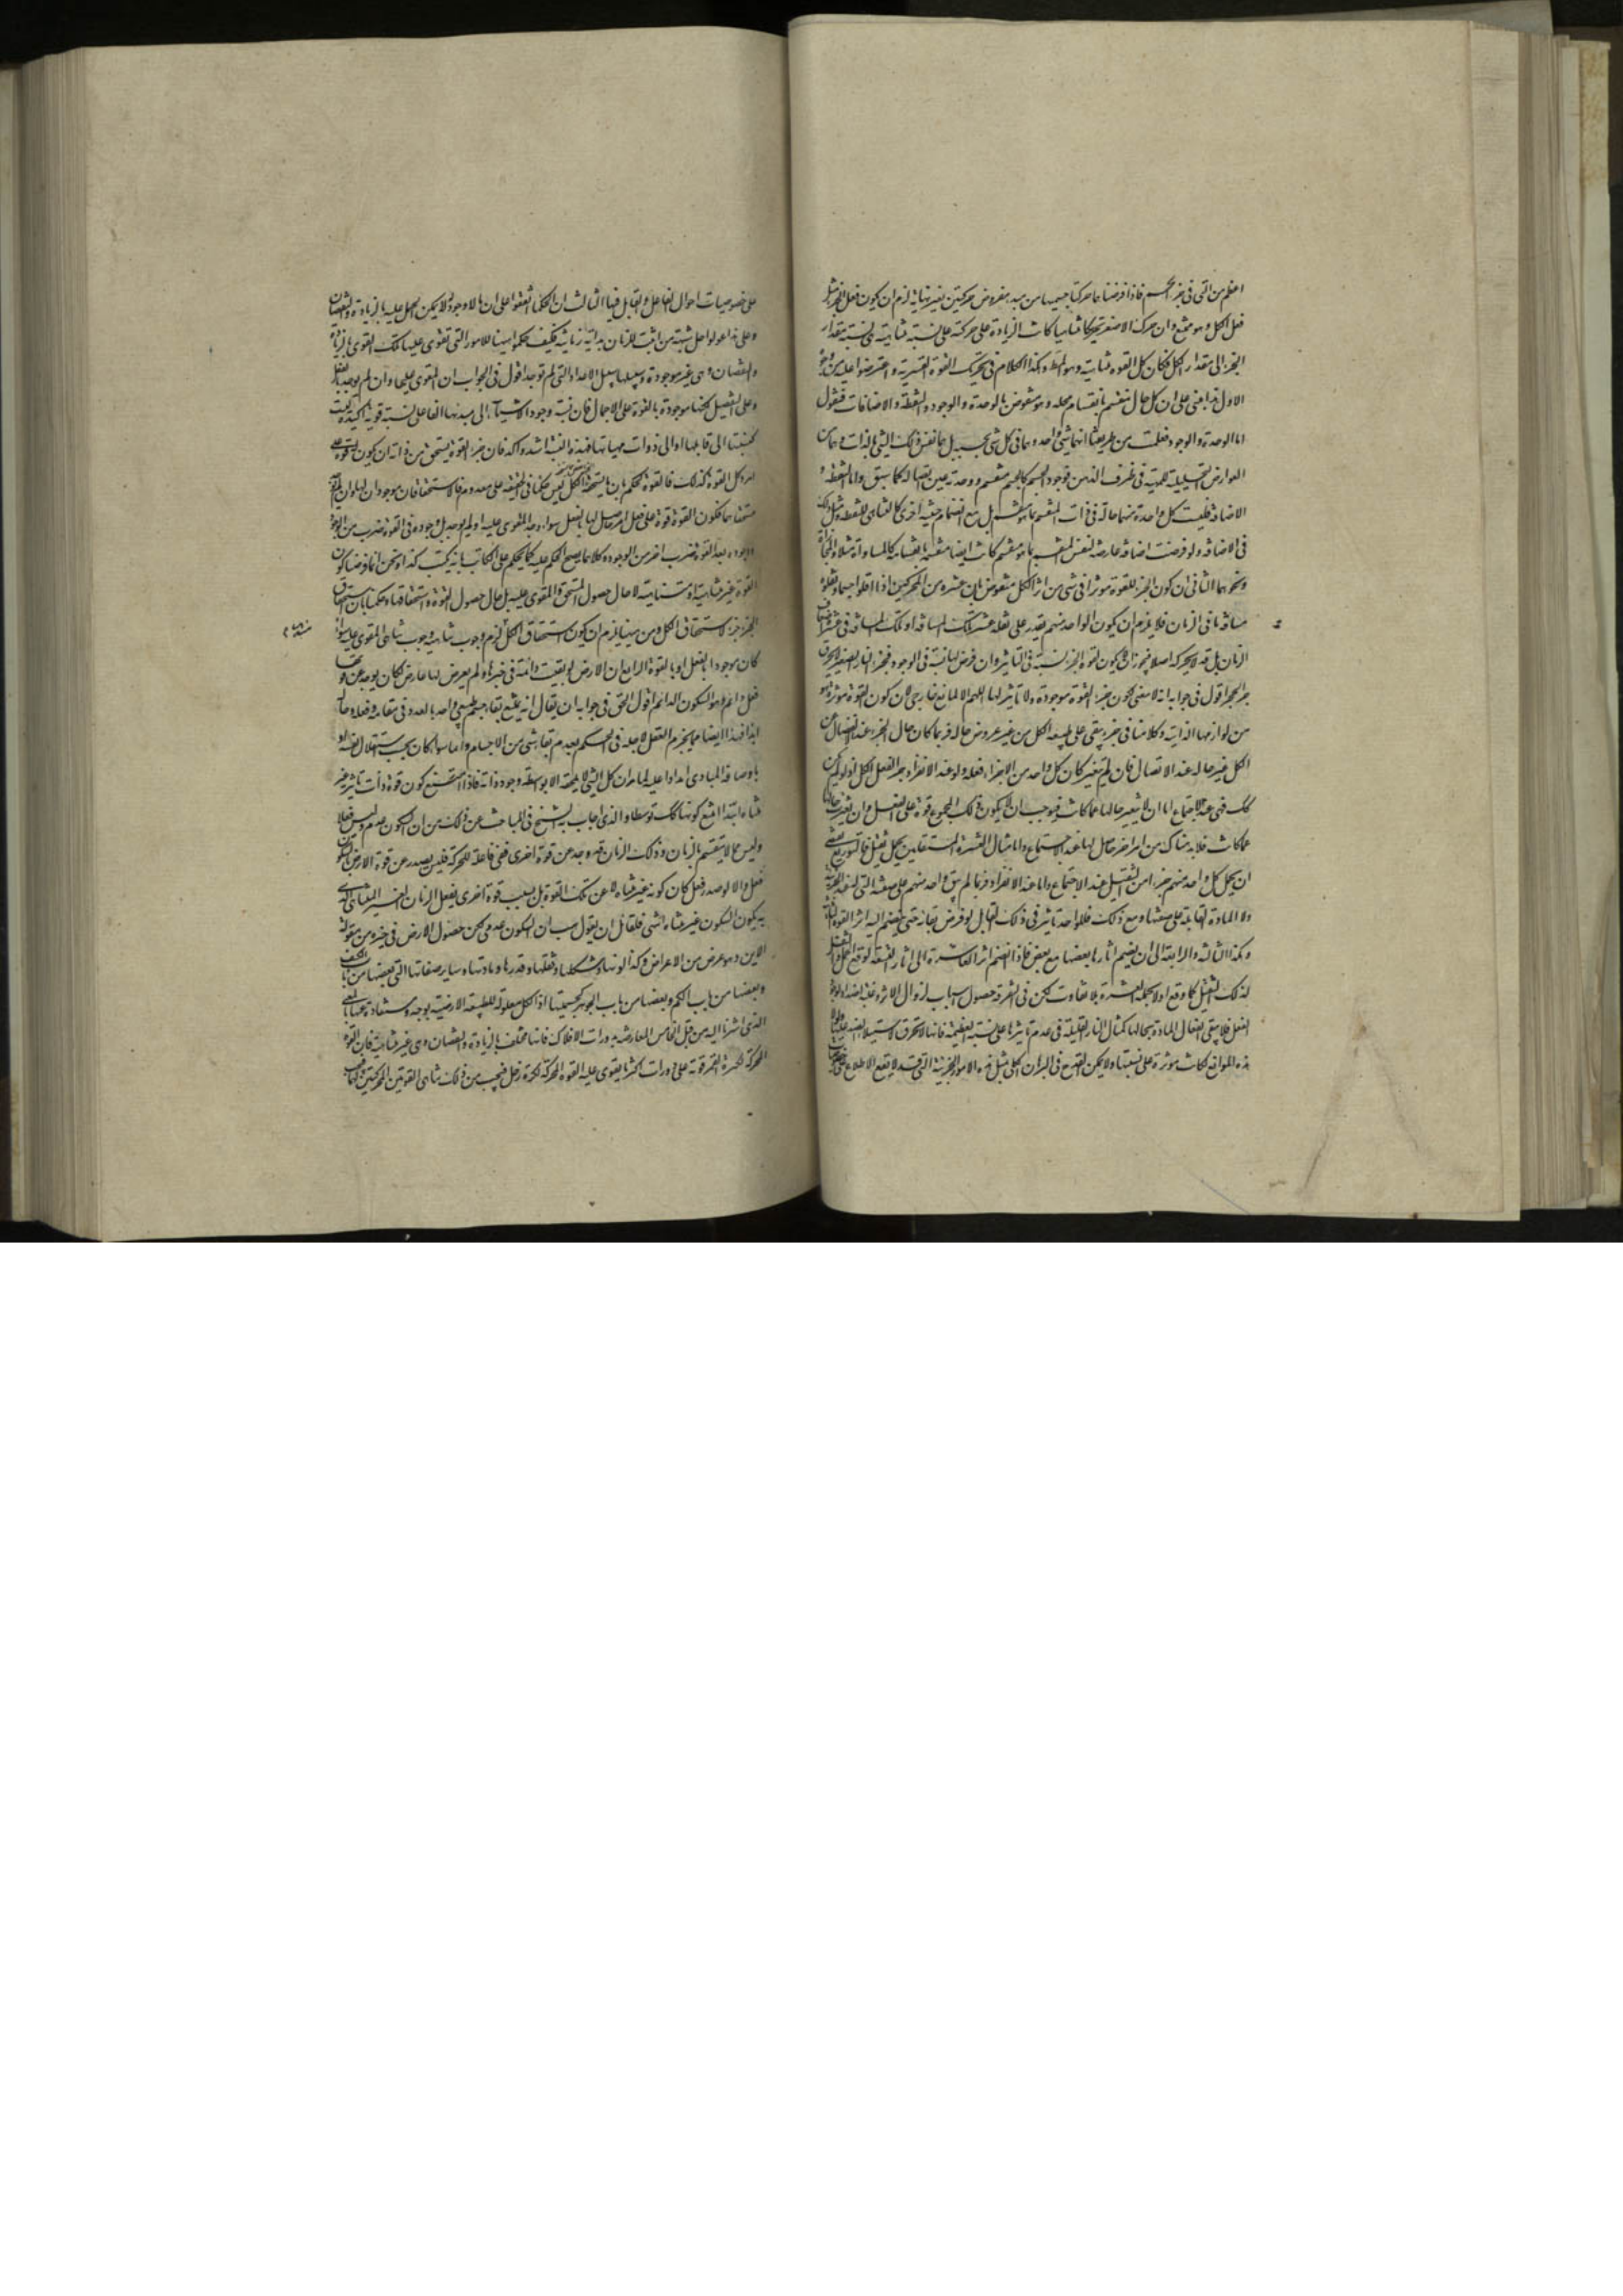 اعظم من التى فى جزء الجسم فاذا فرضنا هما حركتا جسيمهما من مبدء مفروض حركتين بغير نهاية لزم ان يكون فعل الجزء مثل
فعل الكل وهو ممتنع وان حرك الاصغر تحريكا متناهيا كانت الزيادة على حركته على نسبة متناهية هى نسبة مقدار
الجزء الى مقدار الكل فكان كل القوه متناهية وهو المط وهكذا الكلام فى تحريك القوة القسريه واعترضوا عليه من وجوه
الاول هذا مبنى على ان كل حال منقسم بانقسام محله وهو منقوض بالوحدة والوجود والنقطة والاضافات فنقول
اما الوحدة والوجود فعلمت من طريقتنا انهما شىء واحد وهما فى كل شىء بحسبه بل هما نفس ذلك الشىء بالذات وهما من
العوارض التحليلية للمهية فى ظرف الذهن فوجود الجسم كالجسم منقسم ووحدته عين اتصاله كما سبق واما النقطه و
الاضافة فليست كل واحدة منهما حالة فى ذات المنقسم بما هو منقسم بل مع انضمام حيثية اخرى كالتناهى للنقطه ومثل ذلك
فى الاضافه ولو فرضت اضافه عارضه لنفس المنقسم بما هو منقسم كانت ايضا منقسمة بانقسامه كالمساواة مثلا والمحاذاة
ونحوهما الثانى ان كون الجزء للقوة موثرا فى شىء من اثر الكل منقوض بان عشره من المحركين اذا اقلوا جسما ونقلوه
مسافة ما فى الزمان فلا يلزم ان يكون الواحد منهم يقدر على نقله عشر تلك المسافة او تلك المسافة فى عشرة اضعاف
الزمان بل قد لا يحركه اصلا فيجوز ان لا يكون لقوة الجزء نسبة فى التاثير وان فرض لها نسبة فى الوجود فجزء النار الصغير لا يحرق
جزء الحجر اقول فى جوابه انه لا معنى لكون جزء القوة موجودة ولا تاثير لها اللهم الا لمانع خارجى لان كون القوة موثرة هو
من لوازمها الذاتية وكلامنا فى جزء يبقى على طبيعه الكل من غير عروض حاله فربما كان حال الجزء عند انفصال عن
الكل غير حاله عند الاتصال فان لم يتغير كان كل واحد من الاجزاء فعله ولو عند الانفراد جزء الفعل الكل اذ لو لم يكن
كك فهى عند الاجتماع اما ان لا يتغير حالها عما كانت فيوجب ان لا يكون ذلك المجموع قوة على الفعل وان تغيرت حالها
عما كانت فلا بد هناك من امر اخر حاصل لها عند الاجتماع واما مثال العشرة المستقلين بحمل ثقيل فالتوزيع يقتضى
ان يحمل كل واحد منهم جزءا من الثقيل عند الاجتماع واما عند الانفراد فربما لم يبق واحد منهم على صفته التى
ولا المادة القابلة على صفتها ومع ذلك فللواحد تاثير فى ذلك القابل لو فرض بقائه حتى ينضم اليه اثر القوة الثانية
وهكذا الثالثه والرابعة الى ان ينضم اثارها بعضها مع بعض فاذا انضم اثر العاشرة الى اثار التسعة لوقع الحمل والنقل
لذلك الثقيل كما وقع اولا بحمله العشرة بلا تفاوت لكن فى التفرقه حصول اسباب لزوال الاثر وغلبة اضداد لوجود
الفعل فلا يبقى انفعال المادة بحالها كمثال النار القليلة فى عدم تاثيرها على نسبة العظيمة فانها لا تحرق لاستيلاء الضد عليها ولولا
هذه الموانع لكانت موثرة على نسبتها ولا يمكن القدح فى البرهان الكلى بمثل هذه الامور الجزئية التى قد لا يقع الاطلاع على
على خصوصيات احوال الفاعل والقابل فيها الثالث ان الحكما اتفقوا على ان ما لا وجود له لا يمكن الحكم عليه بالزيادة والنقصان
وعلى هذا عولوا حل شبهة من اثبت للزمان بداية زمانية فكيف حكموا ههنا للامور التى تقوى عليها تلك القوى بالزيادة
والنقصان وهى غير موجودة وسبيلها سبيل الاعداد التى لم توجد اقول فى الجواب ان المقوى عليها وان لم يوجد بالفعل
وعلى التفصيل لكنها موجودة بالقوة على الاجمال فان نسبة وجود الاشياء الى مبدئها الفاعلى نسبة قوية اكيدة ليست
كنسبتها الى قابلها او الى ذوات مهياتها فهذه النسبة اشد واكد فان جزء القوة يستحق من ذاته ان يكون يقوى على
امر وكل القوة كذلك فالقوة تحكم بان ما يستحقه الكل ليس حكما فى الحقيقه على معدوم فالاستحقاقان موجودان لها وان لم يوجد
مستحقاهما فكون القوة قوة على فعل امر حاصل لها بالفعل سواء وجد المقوى عليه او لم يوجد بل وجوده فى القوة ضرب من الوجود
ووجوده بعد القوة ضرب اخر من الوجود وكلاهما يصح الحكم عليه كما يحكم على الكاتب بانه يكتب كذا ونحن انما فرضنا كون
القوة غير متناهية او متناهية لا حال حصول المستحق والمقوى عليه بل حال حصول القوة واستحقاقها وحكمنا بان استحقاق
الجزء جزء لاستحقاق الكل ومن هيهنا يلزم ان يكون استحقاق الكل لزم وجوب تناهيه وجوب تناهى المقوى عليه سواء
كان موجودا بالفعل او بالقوة الرابع ان الارض لو بقيت دائمة فى حيزها ولم يعرض لها عارض لكان يوجد عن قوتها
فعل دائم وهو السكون الدائم اقول الحق فى جوابه ان يقال انه يمتنع بقاء جسم طبيعى واحد بالعدد فى مقامه وفعله وحاله
ابدا فهذا ايضا مما يجزم العقل لاجله فى الحكم بعدم بقا شىء من الاجسام واما
باوصافه المبادى ابدا واعليه لما مر ان كل الشىء لا يلحقه الا بواسطة وجود ذاته فاذا امتنع كون قوة ذات تاثير غير
متناه ابتداء امتنع كونها كك توسطا والذى اجاب به الشيخ فى المباحث عن ذلك من ان السكون عدم وليس فعلا
وليس مما لا ينقسم بالزمان وذلك الزمان قد وجد عن قوة اخرى فهى فاعلة للحركة فليس يصدر عن قوة الارض السكون
فعل والا لو صدر فعل كان كونه غير متناه لا عن تلك القوة بل بسبب قوة اخرى يفعل الزمان الغير المتناهى الذى
به يكون السكون غير متناه انتهى فلقائل ان يقول هب ان السكون عدمى لكن حصول الارض فى حيزه من مقولة
الاين وهو عرض من الاعراض وكذا لونها وشكلها وثقلها وقدرها ومادتها وساير صفاتها التى بعضها من باب الكيف
وبعضها من باب الكم وبعضها من باب الجوهر كجسميتها اذ الكل معلولة للطبيعة الارضية بوجه
الذى اشرنا اليه من قبل الخامس المعارضة بدورات الافلاك فانها مختلف بالزيادة والنقصان وهى غير متناهية فان القوة
المحركه لكرة القمر قوية على دورات اكثر مما يقوى عليه القوه المحركه لكرة زحل فيجب من ذلك تناهى القوتين المحركتين